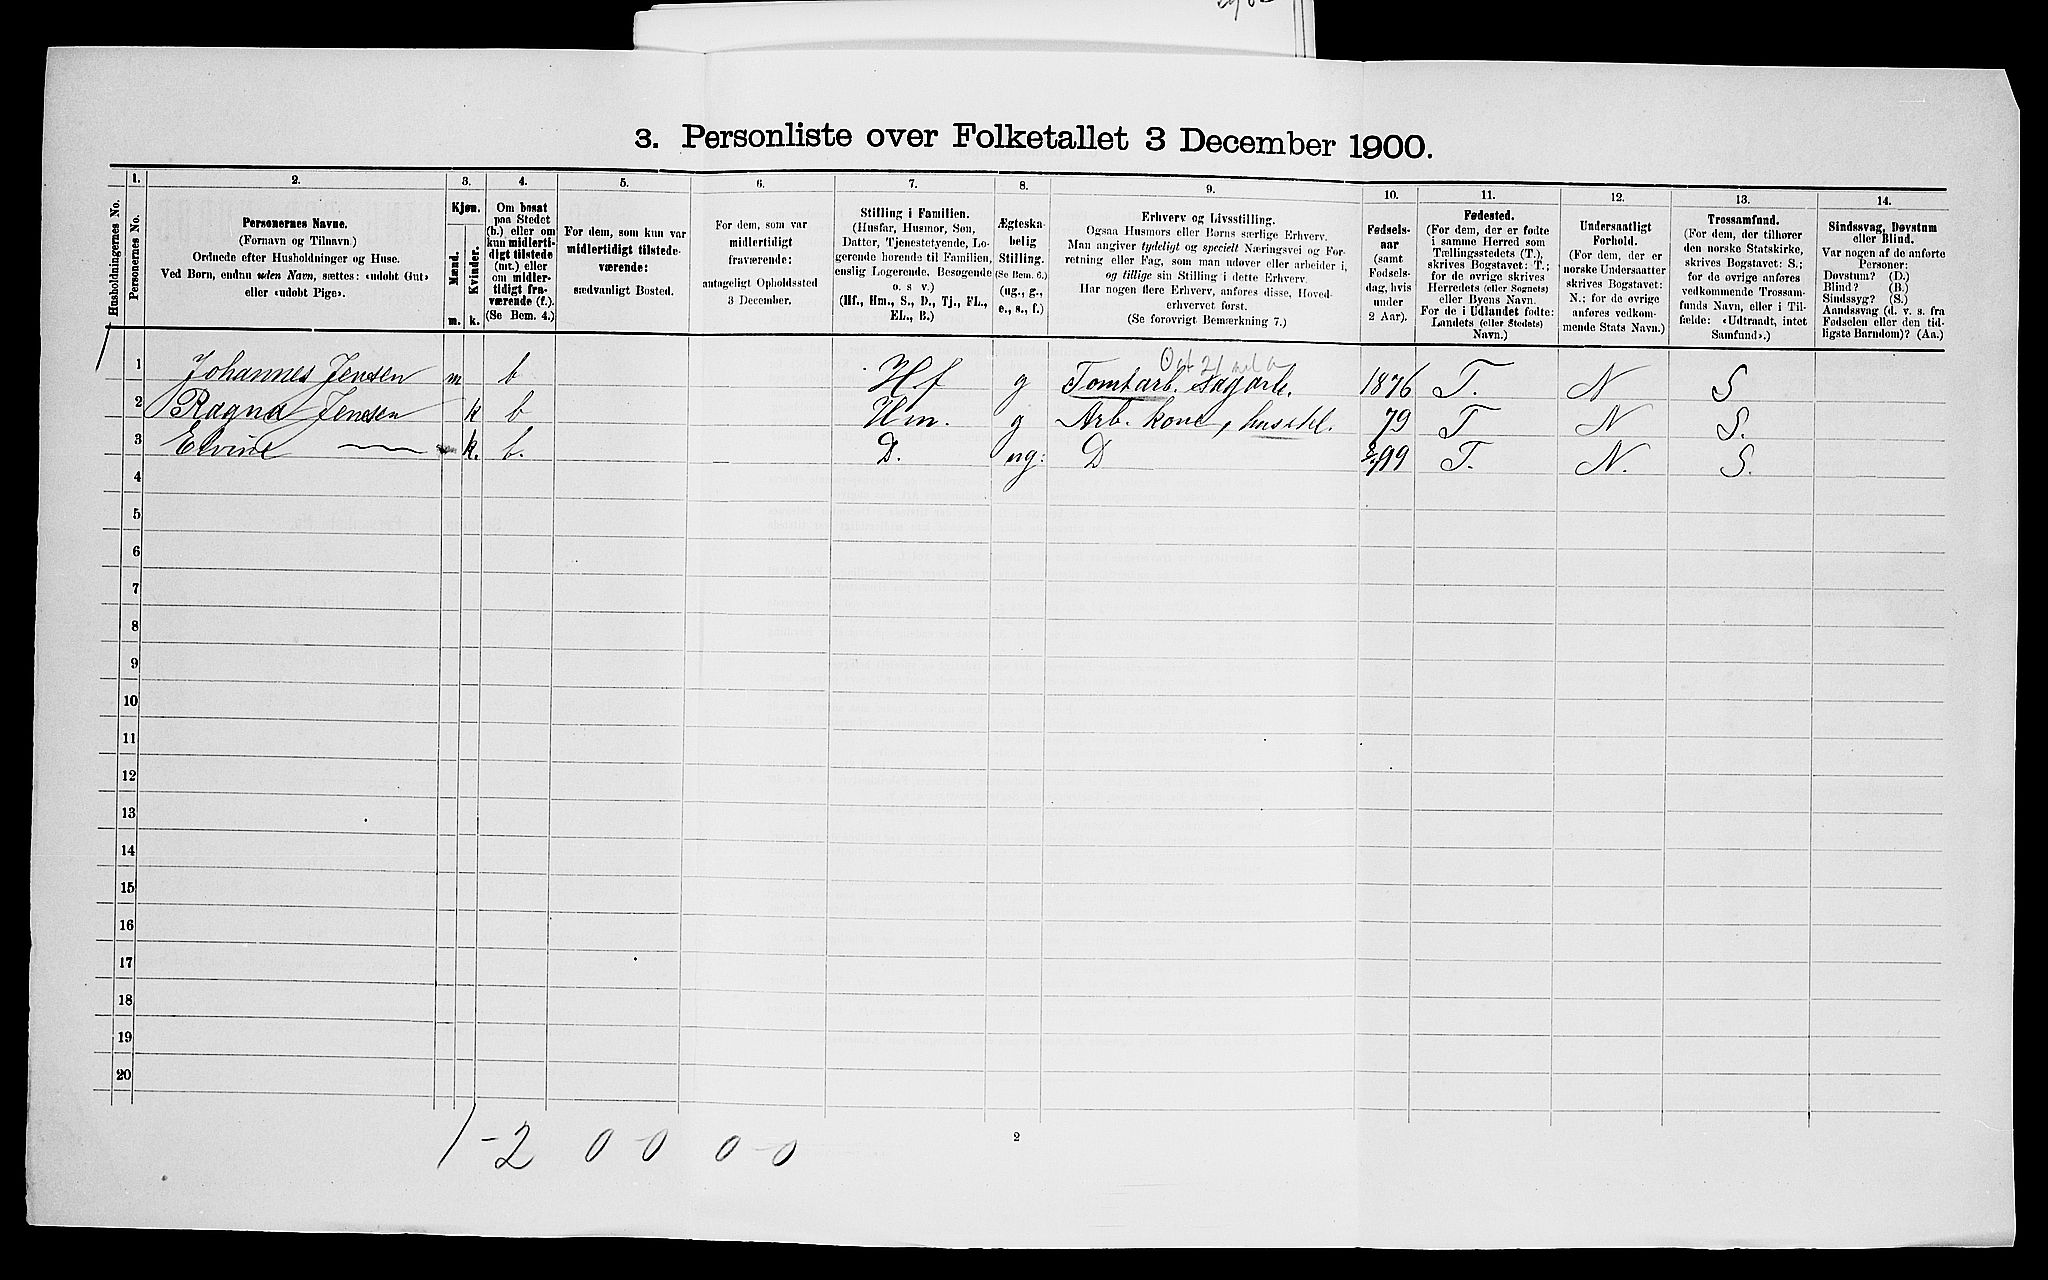 3. Personliste over Folketallet 3 December 1900.
1. 2. 3. 4. 5. 6. 7. 8. 9. 10. 11. 12. 13. 14.
Husholdningernes No.
Personernes No.
Personernes Navne.
(Fornavn og Tilnavn.)
Ordnede efter Husholdninger og Huse.
Ved Børn, endnu uden Navn, sættes: «udøbt Gut»
eller «udøbt Pige».
Kjøn.
Mænd.
Kvinder.
m. k.
Om bosat
paa Stedet
(b.) eller om
kun midlerti-
digt tilstede
(mt.) eller
om midler-
tidigt fra-
værende (f.).
(Se Bem. 4.)
For dem, som kun var
midlertidigt tilstede-
værende:
sædvanligt Bosted.
For dem, som var
midlertidigt
fraværende:
antageligt Opholdssted
3 December.
Stilling i Familien.
(Husfar, Husmor, Søn,
Datter, Tjenestetyende, Lo-
gerende hørende til Familien,
enslig Logerende, Besøgende
o. s v.)
(Hf., Hm., S., D., Tj., FL.,
EL., B.)
Ægteska-
belig
Stilling.
(Se Bem. 6.)
(ug., g.,
e., s., f.)
Erhverv og Livsstilling.
Ogsaa Husmors eller Børns særlige Erhverv.
Man angiver tydeligt og specielt Næringsvei og For-
retning eller Fag, som man udøver eller arbeider i,
og tillige sin Stilling i dette Erhverv.
Har nogen flere Erhverv, anføres disse, Hoved-
erhvervet først.
(Se forøvrigt Bemærkning 7.)
Fødsels-
aar
(samt
Fødsels-
dag, hvis
under
2 Aar).
Fødested.
(For dem, der er fødte
i samme Herred som
Tællingsstedets (T.),
skrives Bogstavet: T.;
for de øvrige skrives
Herredets (eller Sognets)
eller Byens Navn.
For de i Udlandet fødte:
Landets (eller Stedets)
Navn.)
Undersaatligt
Forhold.
(For dem, der er
norske Undersaatter
skrives Bogstavet:
N.; for de øvrige
anføres vedkom-
mende Stats Navn.)
Trossamfund.
(For dem, der tilhører
den norske Statskirke,
skrives Bogstavet: S.;
for de øvrige anføres
vedkommende Trossam-
funds Navn, eller i Til-
fælde: «Udtraadt, intet
Samfund».)
Sindssvag, Døvstum
eller Blind.
Var nogen af de anførte
Personer:
Døvstum? (D.)
Blind? (B.)
Sindssyg? (S.)
Aandssvag (d. v. s. fra
Fødselen eller den tid-
ligste Barndom)? (Aa.)
1 1 Johannes Jensen m b Hf g Tomtarb. Sagarb. 1876 T. N S
2 Ragna Jensen k b Hm. g Arb. kone, husstel. 79 T N S.
3 Elvine — k. b. D. ug: D 99 T. N. S.
4
5
6
7
8
9
10
11
12
13
14
15
16
17
18
19
20
1 - 2 0 - 0 0 - 0
2